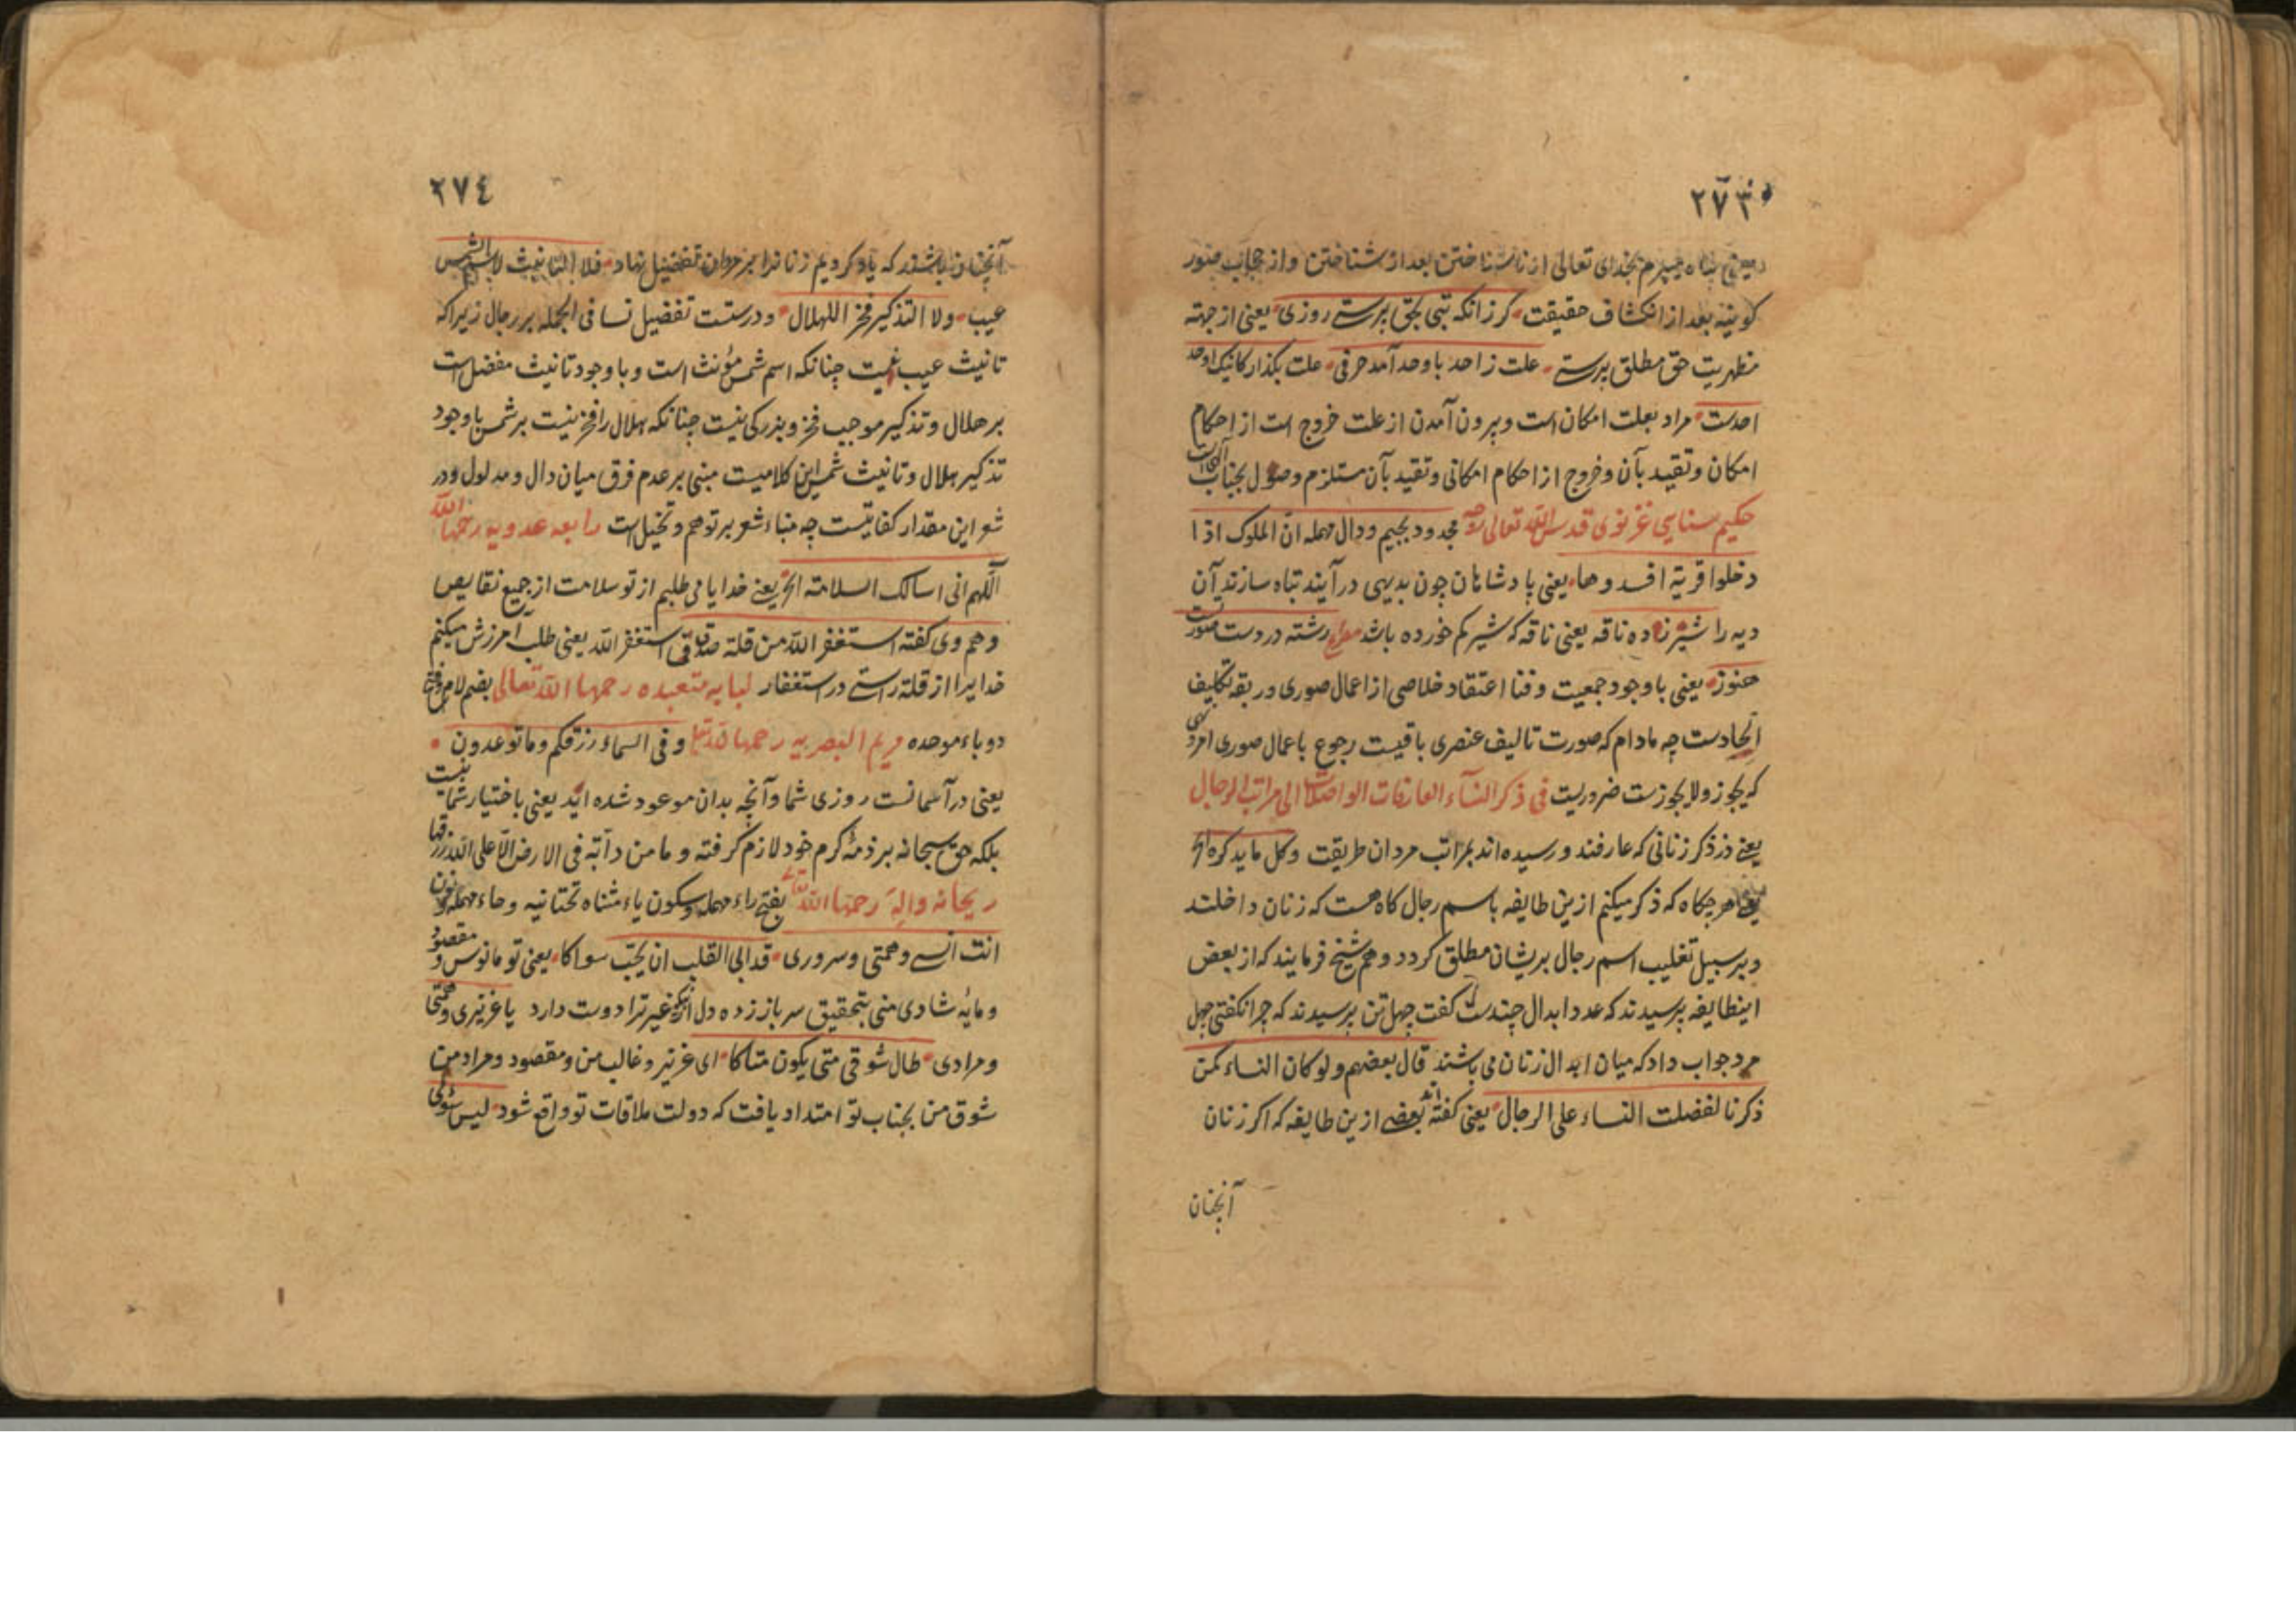 ٢٧٣
یعنی پناه میبرم بخدای تعالی از ناشناختن بعد از شناختن و از حجاب صور
کونیه بعد از انکشاف حقیقت کر زانکه بتی بحق پرستی روزی یعنی از جهته
مظهریت حق مطلق پرستی علت ز احد باوحد آمد حرفی علت بگذار کانیک اوحد
احدست مراد بعلت امکان است و بیرون آمدن از علت خروج است از احکام
امکان و تقید بآن و خروج از احکام امکانی و تقید بآن مستلزم وصول بجناب الهی است
حکیم سنایی غزنوی قدس الله تعالی روحه مجدود بجیم و دال مهمله ان الملوک اذا
دخلوا قریة افسدوها یعنی پادشاهان چون بدیهی درآیند تباه سازند آن
دیه را شیر زاده ناقه یعنی ناقه که شیر کم خورده باشد رشته در دست صورتست
هنوز یعنی با وجود جمعیت و فنا اعتقاد خلاصی از اعمال صوری و ربقه تکلیف
الحادست چه مادام که صورت تالیف عنصری باقیست رجوع باعمال صوری امر و نهی
که یجوز ولایجوزست ضروریست فی ذکر النسآء العارفات الواصلات الی مراتب الرجال
یعنی در ذکر زنانی که عارفند و رسیده اند بمراتب مردان طریقت و کل ما یذکره الخ
یعنی هر چکاه که ذکر میکنم ازین طایفه باسم رجال کاه هست که زنان داخلند
و بر سبیل تغلیب اسم رجال بریشان مطلق کردد و هم شیخ فرمایند که از بعض
اینطایفه پرسیدند که عدد ابدال چندست گفت چهل تن پرسیدند که چرا نکفتی چهل
مرد جواب داد که میان ابدال زنان می باشند قال بعضهم ولو کان النساء کمن
ذکرنا لفضلت النساء علی الرجال یعنی کفته اند بعضی ازین طایفه که اکر زنان
آنچنان
٢٧٤
آنچنان باشند که یاد کردیم زنانرا بر مردان تفضیل نهاد فلا التانیث لاسم الشمس
عیب ولا التذکیر فخر اللهلال و درستست تفضیل نسا فی الجمله بر رجال زیرا که
تانیث عیب نیست چنانکه اسم شمس مؤنث است و با وجود تانیث مفضل است
بر هلال و تذکیر موجب فخر و بزرکی نیست چنانکه هلال را فخر نیست بر شمس با وجود
تذکیر هلال و تانیث شمس این کلامیست مبنی بر عدم فرق میان دال و مدلول و در
شعر این مقدار کفایتست چه مبناء شعر بر توهم و تخیل است رابعه عدویه رحمها الله
اللهم انی اسالک السلامة الخ یعنی خدایا می طلبم از تو سلامت از جمیع نقایص
و هم وی کفته استغفر الله من قلة صدقی فی استغفر الله یعنی طلب آمرزش میکنم
خدایرا از قلة راستی در استغفار لبابه متعبده رحمها الله تعالی بضم لام و فتح
دو باء موحده مریم البصریه رحمها الله تعالی و فی السماء رزقکم وما توعدون
یعنی در آسمانست روزی شما و آنچه بدان موعود شده اید یعنی باختیار شما نیست
بلکه حق سبحانه بر ذمهٔ کرم خود لازم کرفته و ما من دآبه فی الارض الا علی الله رزقها
ریحانه والهه رحمها الله تعالی بفتح راء مهمله و سکون یاء مثناه تحتانیه و حاء مهمله و نون
انت انسی و همتی و سروری قد ابی القلب ان یحب سواکا یعنی تو مانوس و مقصود
و مایهٔ شادی منی بتحقیق سرباز زده دل ازینکه غیر ترا دوست دارد یا عزیزی و همتی
و مرادی طال شوقی متی یکون متاکا ای عزیز و غالب من و مقصود و مراد من
شوق من بجناب تو امتداد یافت که دولت ملاقات تو واقع شود لیس سؤلی